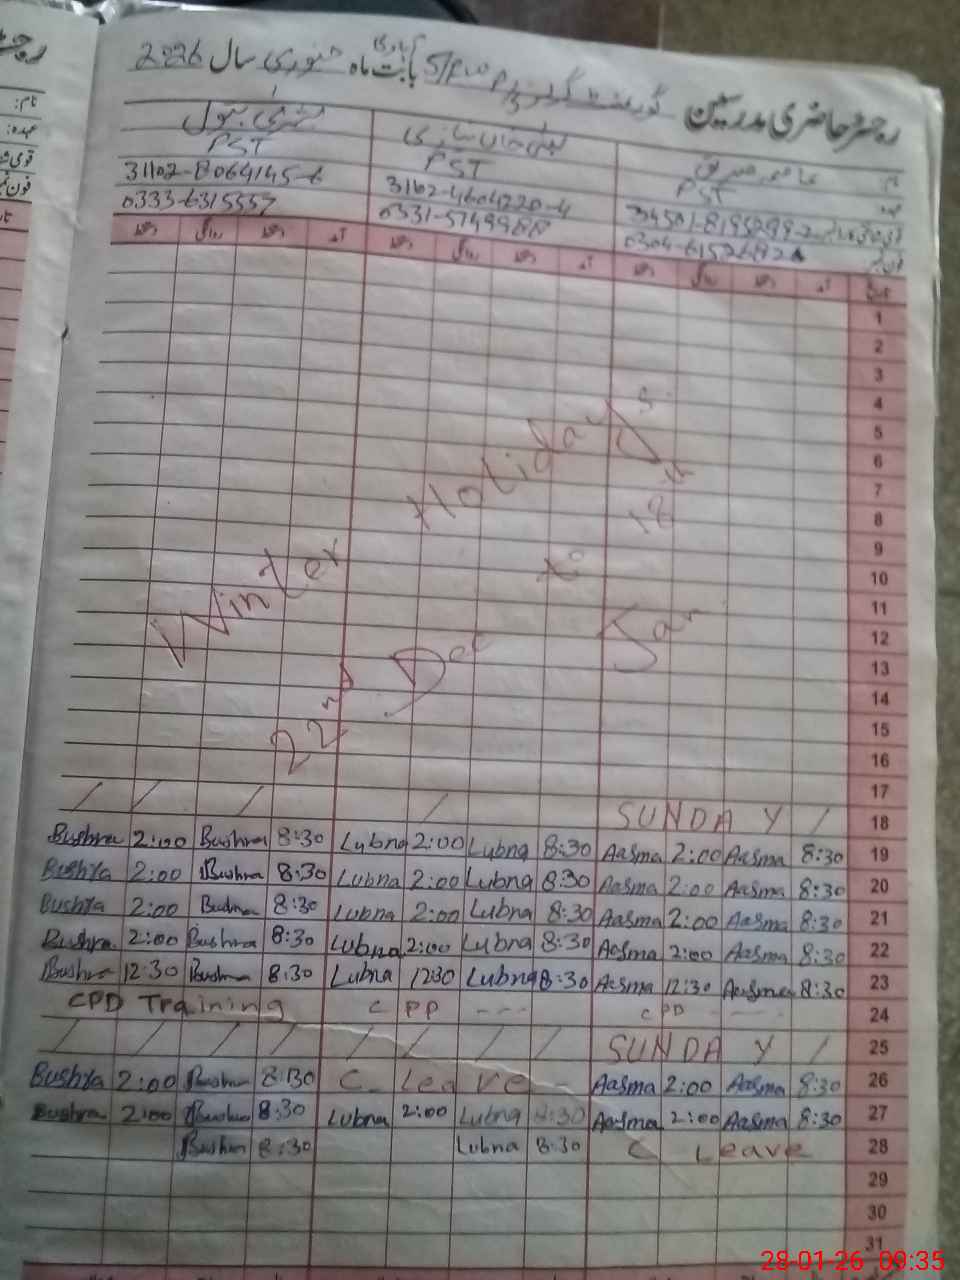 رجسٹر حاضری مدرسین گورنمنٹ گرلز بابت ماہ جنوری سال 2026
بشریٰ بتول
PST PST PST
31102-8064145-6
0333-6315557
تاریخ آمد دستخط روانگی دستخط آمد دستخط روانگی دستخط آمد دستخط روانگی دستخط
1
2
3
4
5
6
7
8
9
10
11
12
13
14
15
16
17
Winter Holidays
22nd Dec to 18th Jan
SUNDAY 18
Bushra 2:00 Bushra 8:30 Lubna 2:00 Lubna 8:30 Aasma 2:00 Aasma 8:30 19
Bushra 2:00 Bushra 8:30 Lubna 2:00 Lubna 8:30 Aasma 2:00 Aasma 8:30 20
Bushra 2:00 Bushra 8:30 Lubna 2:00 Lubna 8:30 Aasma 2:00 Aasma 8:30 21
Bushra 2:00 Bushra 8:30 Lubna 2:00 Lubna 8:30 Aasma 2:00 Aasma 8:30 22
Bushra 12:30 Bushra 8:30 Lubna 1230 Lubna 8:30 Aasma 12:30 Aasma 8:30 23
CPD Training CPD --- CPD ---- 24
SUNDAY 25
Bushra 2:00 Bushra 8:30 C Leave - Aasma 2:00 Aasma 8:30 26
Bushra 2:00 Bushra 8:30 Lubna 2:00 Lubna 8:30 Aasma 2:00 Aasma 8:30 27
Bushra 8:30 Lubna 8:30 C Leave 28
29
30
31
28-01-26 09:35